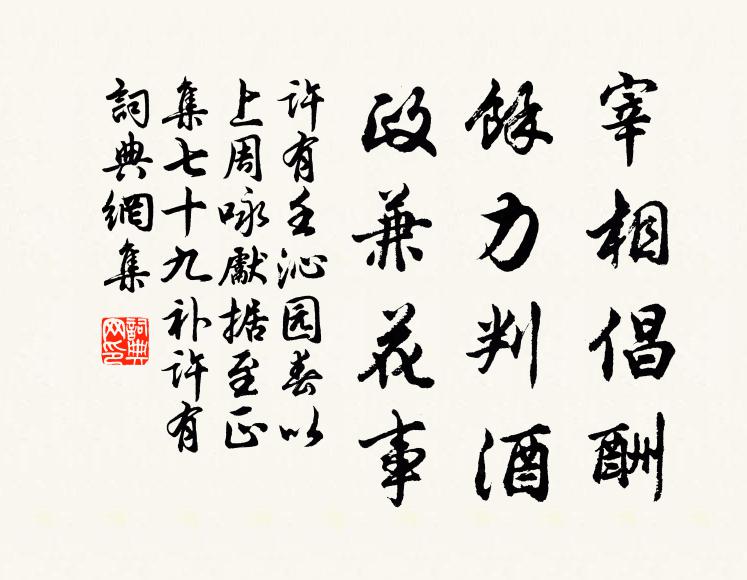 宰相倡酬
餘力判酒
政兼花事
许有壬沁园春以
上周咏獻据至正
集七十九补许有
詞典網集
詞典
网印